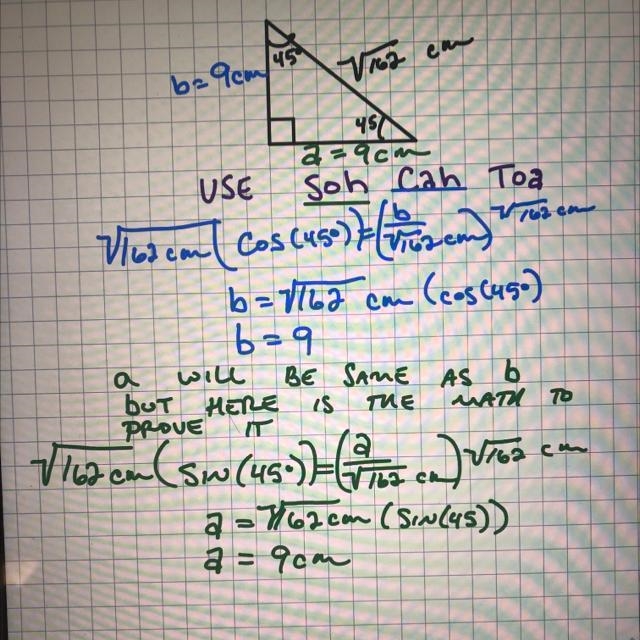 45° √162 cm
b = 9cm
45
a = 9cm
USE Soh Cah Toa
√162 cm ( cos(45°) = ( b/√162 cm ) √162 cm
b = √162 cm (cos(45°)
b = 9
a WILL BE SAME AS b
but HERE IS THE MATH TO
PROVE IT
√162 cm ( sin(45°) ) = ( a/√162 cm ) √162 cm
a = √162 cm (Sin(45))
a = 9cm